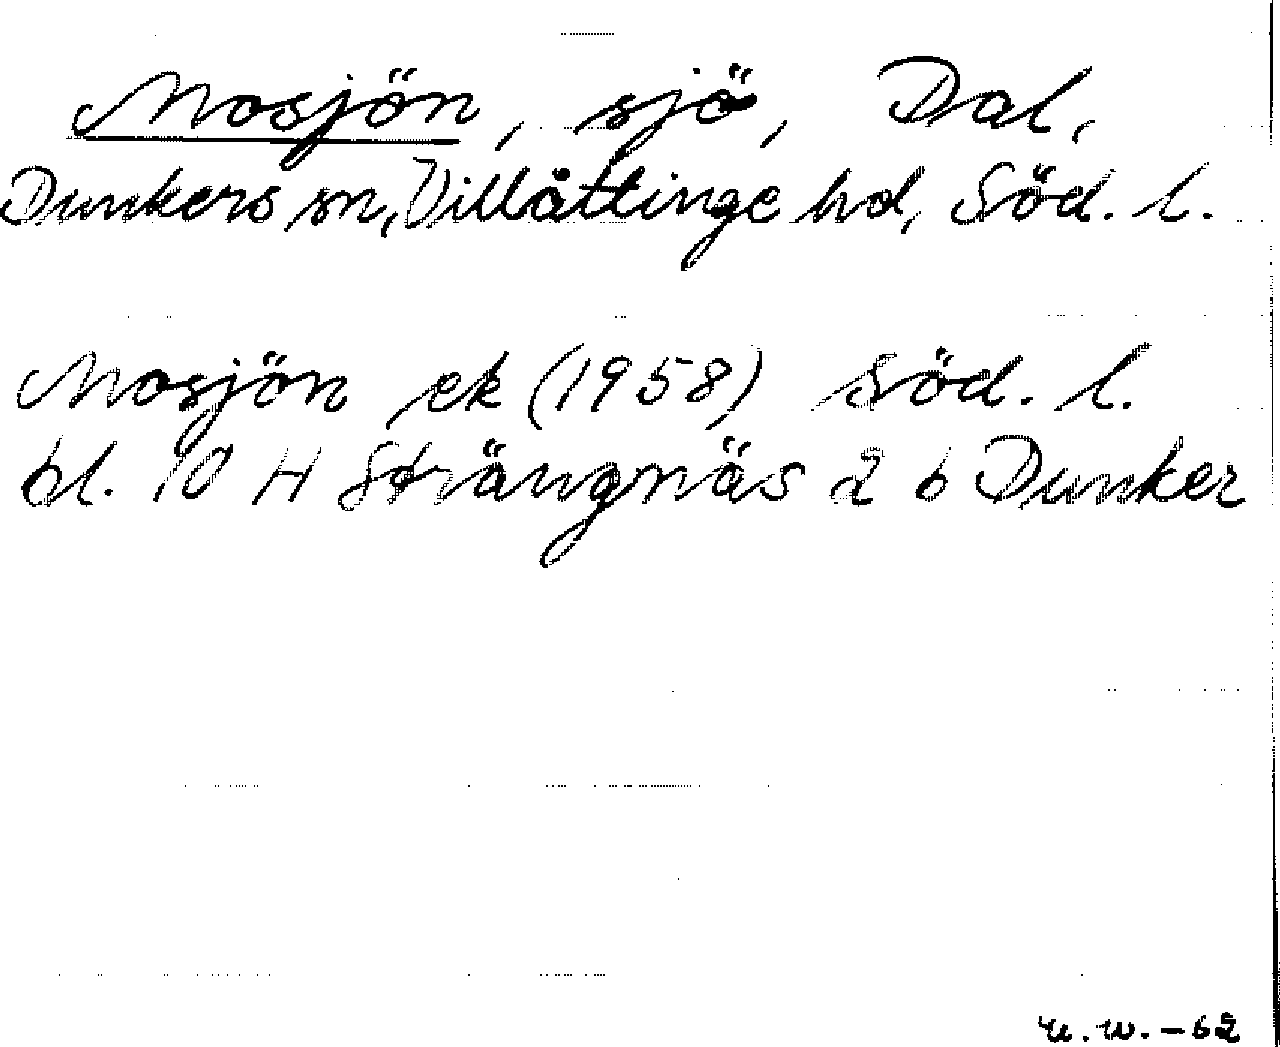 Mosjön, sjö, Dal,
Dunkers sn, Villåttinge hd, Söd. l.
Mosjön ek (1958) Söd. l.
bl. 10 H Strängnäs 2 b Dunker
U.W.-62